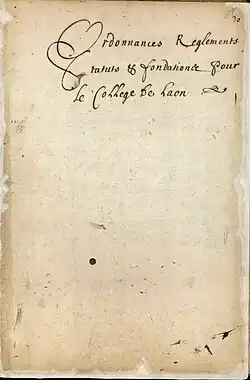 Ordonnances Reglements
Statuts & fondations pour
le College de Laon